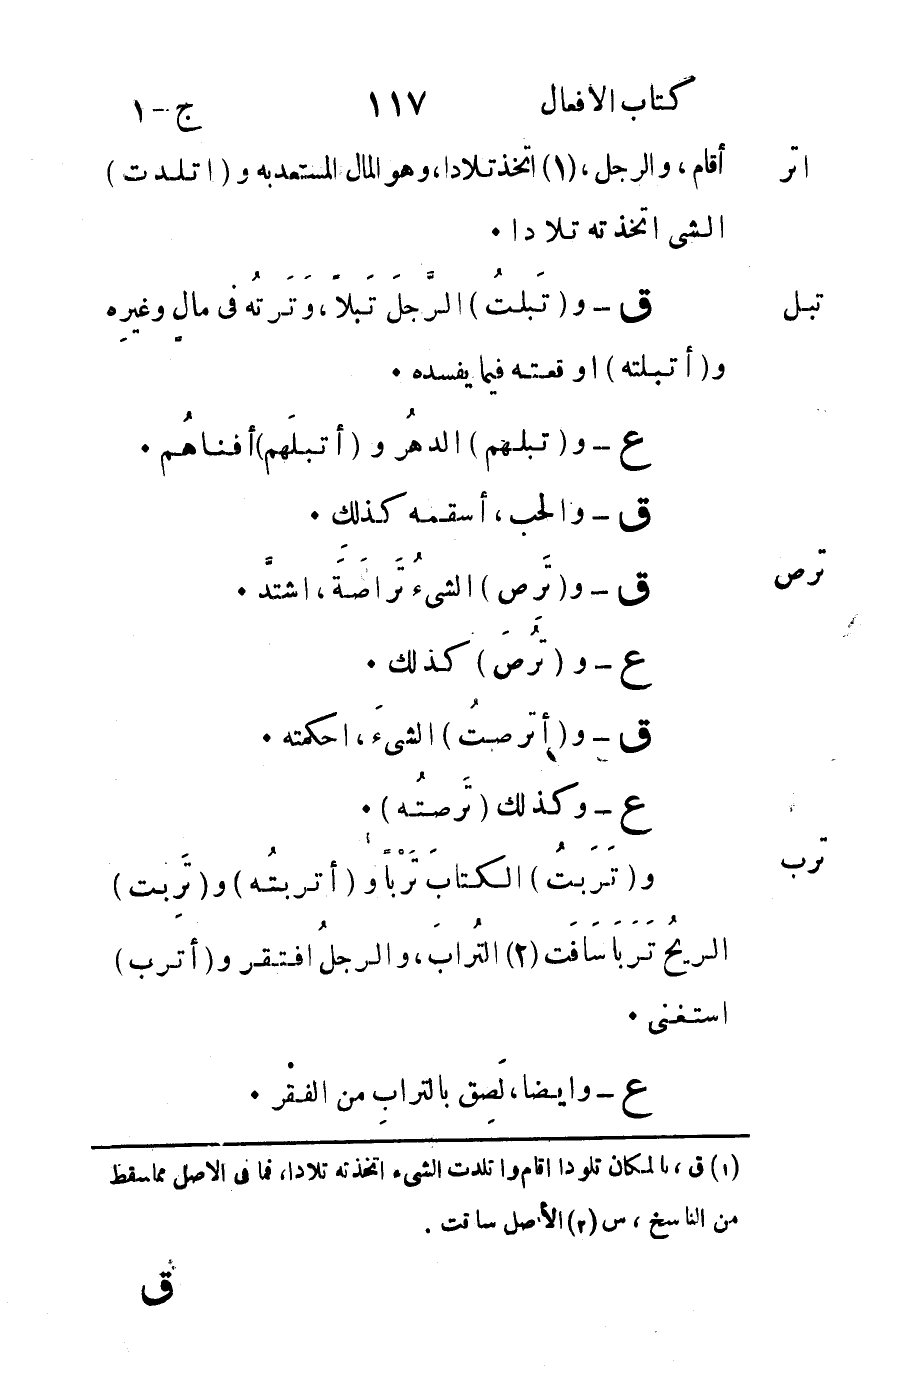 كتاب الافعال ١١٧ ج – ١
اتر أقام ، والرجل ، (١) اتخذ تلادا ، وهو المال المستعد به و ( اتلدت )
الشى اتخذ ته تلا دا ٠
تبل ق – و ( تَبلتُ ) الرَّجلَ تَبلاً ، وَتَرتُه فى مالٍ وغيرِه
و ( أتبلته ) او قعته فيما يفسده ٠
ع – و ( تبلهم ) الدهرُ و ( أتبلَهم ) أفناهُم ٠
ق – والحب ، أسقمه كذلك ٠
ترص ق – و ( تَّرص ) الشىءُ تَّراصَةَ ، اشتدَّ ٠
ع – و ( تَّرُصَ ) كذلك ٠
ق – و ( أترصتُ ) الشىءَ ، احكمته ٠
ع – وكذلك ( تَّرصتُه ) ٠
ترب و ( تَرَبتُ ) الكتابَ تَّرْباً و ( أتربتُه ) و ( تَّرِبت )
الريحُ تَرَبَا سَافَت (٢) التُرابَ ، والرجلُ افتقر و ( أترب )
استغنى ٠
ع – وايضا ، لَصِق بالترابِ من الفقْر ٠
(١) ق ، بالمكان تلودا اقام وا تلدت الشىء اتخذ ته تلادا ، فما فى الاصل مماسقط
من الناسخ ، س (٢) الأصل سا قت .
ق